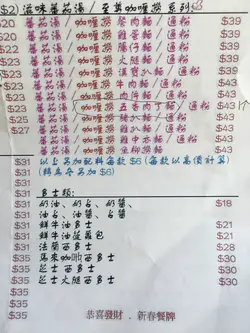 $20 滋味蕃茄湯 / 至尊咖喱撈系列
$20 蕃茄湯 / 咖喱撈 餐肉麵 / 通粉 $39
$20 蕃茄湯 / 咖喱撈 雞蛋麵 / 通粉 $39
$22 蕃茄湯 / 咖喱撈 腸仔麵 / 通粉 $39
$20 蕃茄湯 / 咖喱撈 火腿麵 / 通粉 $39
$27 蕃茄湯 / 咖喱撈 漢寶扒麵 / 通粉 $39
$25 蕃茄湯 / 咖喱撈 牛肉麵 / 通粉 $43
$23 蕃茄湯 / 咖喱撈 肉片麵 / 通粉 $43
$23 蕃茄湯 / 咖喱撈 五香肉丁麵 / 通粉 $43
$25 蕃茄湯 / 咖喱撈 豬扒麵 / 通粉 $43
蕃茄湯 / 咖喱撈 雞扒麵 / 通粉 $43
蕃茄湯 / 咖喱撈 雞中亦麵 / 通粉 $43
蕃茄湯 / 咖喱撈 魚柳麵 / 通粉 $43
$31 以上另加配料每款 $6 (每款以高價計算)
$31 (轉烏冬另加 $6)
$31
$31 多士類:
$31 奶油、奶占、奶醬、 $18
$31 油占、油醬、占醬
$31 鮮牛油多士 $21
$31 鮮牛油菠蘿包 $21
$31 法蘭西多士 $28
$35 馬來咖吔西多士 $30
$35 芝士西多士 $30
$35 芝士火腿西多士 $30
$35
$35 恭喜發財 . 新春餐牌